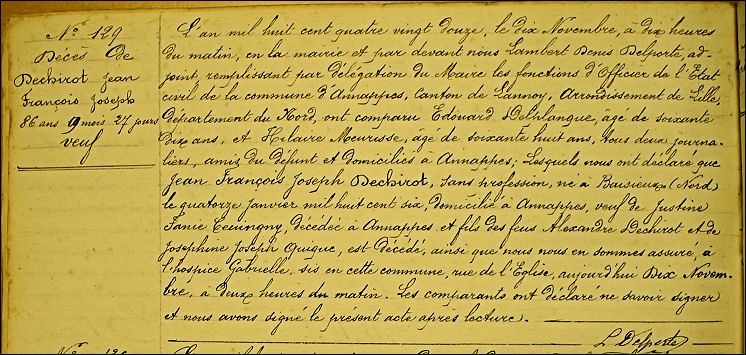 N° 129
Décès de
Dechirot Jean
François Joseph
86 ans 9 mois 27 jours
veuf
L'an mil huit cent quatre vingt douze, le dix Novembre, à dix heures
du matin, en la mairie et par devant nous Lambert Denis Delporte, ad-
joint, remplissant par délégation du Maire les fonctions d'Officier de l'Etat
civil de la commune d'Annappes, Canton de Lannoy, Arrondissement de Lille,
Département du Nord, ont comparu Edouard Delblangue, agé de soixante
dix ans, et Hilaire Meurisse, agé de soixante huit ans, tous deux journa-
liers, amis du défunt et domiciliés à Annappes; Lesquels nous ont déclaré que
Jean François Joseph Dechirot, sans profession, né à Baisieux (Nord
le quatorze janvier mil huit cent six, domicilié à Annappes, veuf de Justine
décédée à Annappes et fils des feus Alexandre Dechirot et de
Joséphine Joseph est décédé, ainsi que nous nous en sommes assuré, à
l'hospice Gabrielle, sis en cette commune, rue de l'Eglise, aujourd'hui Dix Novem-
bre, à deux heures du matin. Les comparants ont déclaré ne savoir signer
et nous avons signé le présent acte après lecture.
L. Delporte